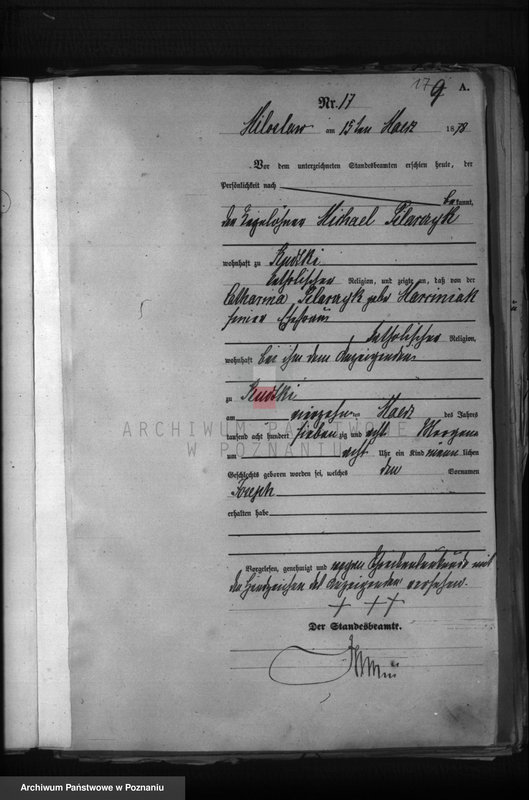 179 A.
Nr. 17
Miloslaw am 15ten Maerz 1878
Vor dem unterzeichneten Standesbeamten erschien heute, der
Persönlichkeit nach
bekannt,
der Tagelöhner Michael Pilarczyk
wohnhaft zu
katholischer Religion, und zeigte an, daß von der
Catharina Pilarczyk geb. Marciniak
seiner Ehefrau
katholischer Religion,
wohnhaft bei ihm dem Anzeigenden
zu
am vierzehnten Maerz des Jahres
tausend acht hundert siebenzig und acht Morgens
um acht Uhr ein Kind männlichen
Geschlechts geboren worden sei, welches den Vornamen
Joseph
erhalten habe
Vorgelesen, genehmigt und wegen Schreibensunkunde mit
den Handzeichen des Anzeigenden versehen.
+ ++
Der Standesbeamte.
ARCHIWUM PAŃSTWOWE
W POZNANIU
Archiwum Państwowe w Poznaniu